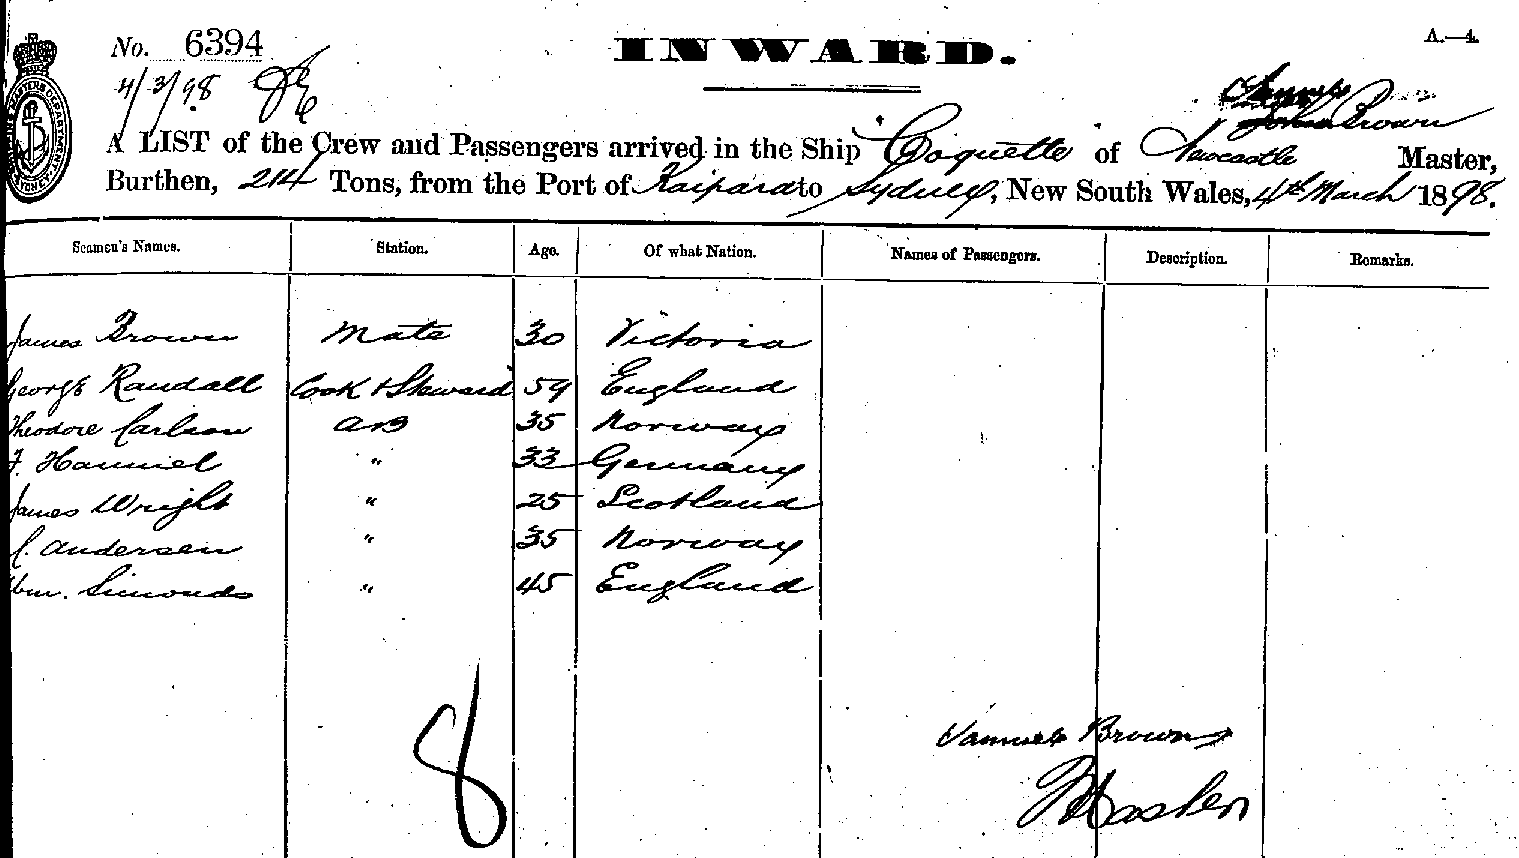 No. 6394
INWARD.
A.—4.
4/3/98
Samuel
John Brown
A LIST of the Crew and Passengers arrived in the Ship Coquette of Newcastle Master,
Burthen, 214 Tons, from the Port of Kaipara to Sydney, New South Wales, 4th March 1898.
Seamen's Names. Station. Age. Of what Nation. Names of Passengers. Description. Remarks.
James Brown Mate 30 Victoria
George Randall Cook & Steward 59 England
Theodore Carlson AB 35 Norway
F. Hanniel " 33 Germany
James Wright " 25 Scotland
C. Andersen " 35 Norway
Wm. Simonds " 45 England
8
Samuel Brown
Master